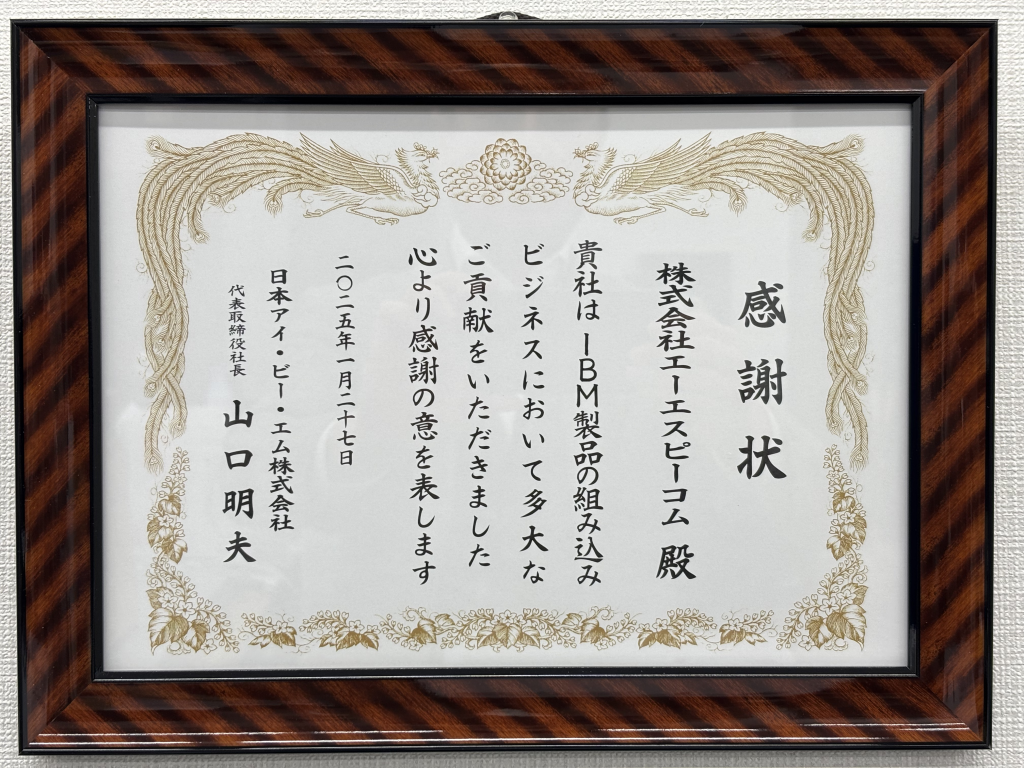 感謝状
株式会社エーエスピーコム 殿
貴社はIBM製品の組み込み
ビジネスにおいて多大な
ご貢献をいただきました
心より感謝の意を表します
二〇二五年一月二十七日
日本アイ・ビー・エム株式会社
代表取締役社長 山口明夫